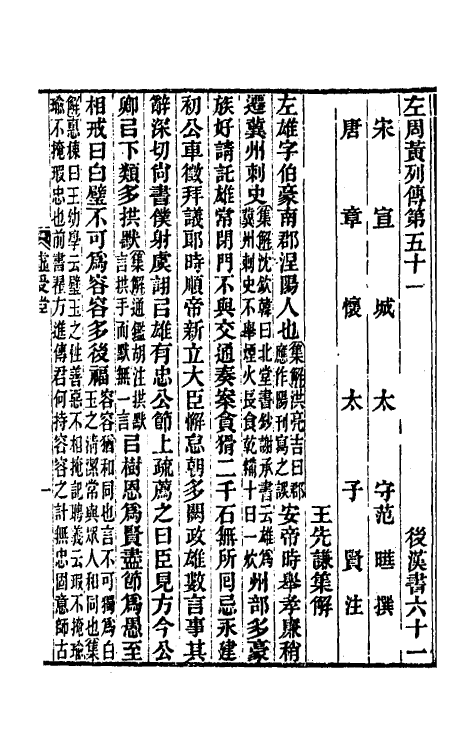 左周黃列傳第五十一 後漢書六十一
宋宣城太守范曄撰
唐章懷太子賢注
王先謙集解
左雄字伯豪南郡涅陽人也集解洪亮吉曰郡應作陽刊寫之誤安帝時舉孝廉稍
遷冀州刺史集解沈欽韓曰北堂書鈔謝承書云雄爲冀州刺史不舉煙火長食乾糒十日一炊州部多豪
族好請託雄常閉門不與交通奏案貪猾二千石無所回忌永建
初公車徵拜議郎時順帝新立大臣懈怠朝多闕政雄數言事其
辭深切尚書僕射虞詡㠯雄有忠公節上疏薦之曰臣見方今公
卿㠯下類多拱默集解通鑑胡注拱默言拱手而默無一言㠯樹恩爲賢盡節爲愚至
相戒曰白璧不可爲容容多後福容容猶和同也言不可獨爲白玉之清潔常與眾人和同也集
解惠棟曰王幼學云璧玉之性善惡不相掩記聘義云瑕不掩瑜
瑜不掩瑕忠也前書翟方進傳君何持容容之計無忠固意師古
虛受堂
一